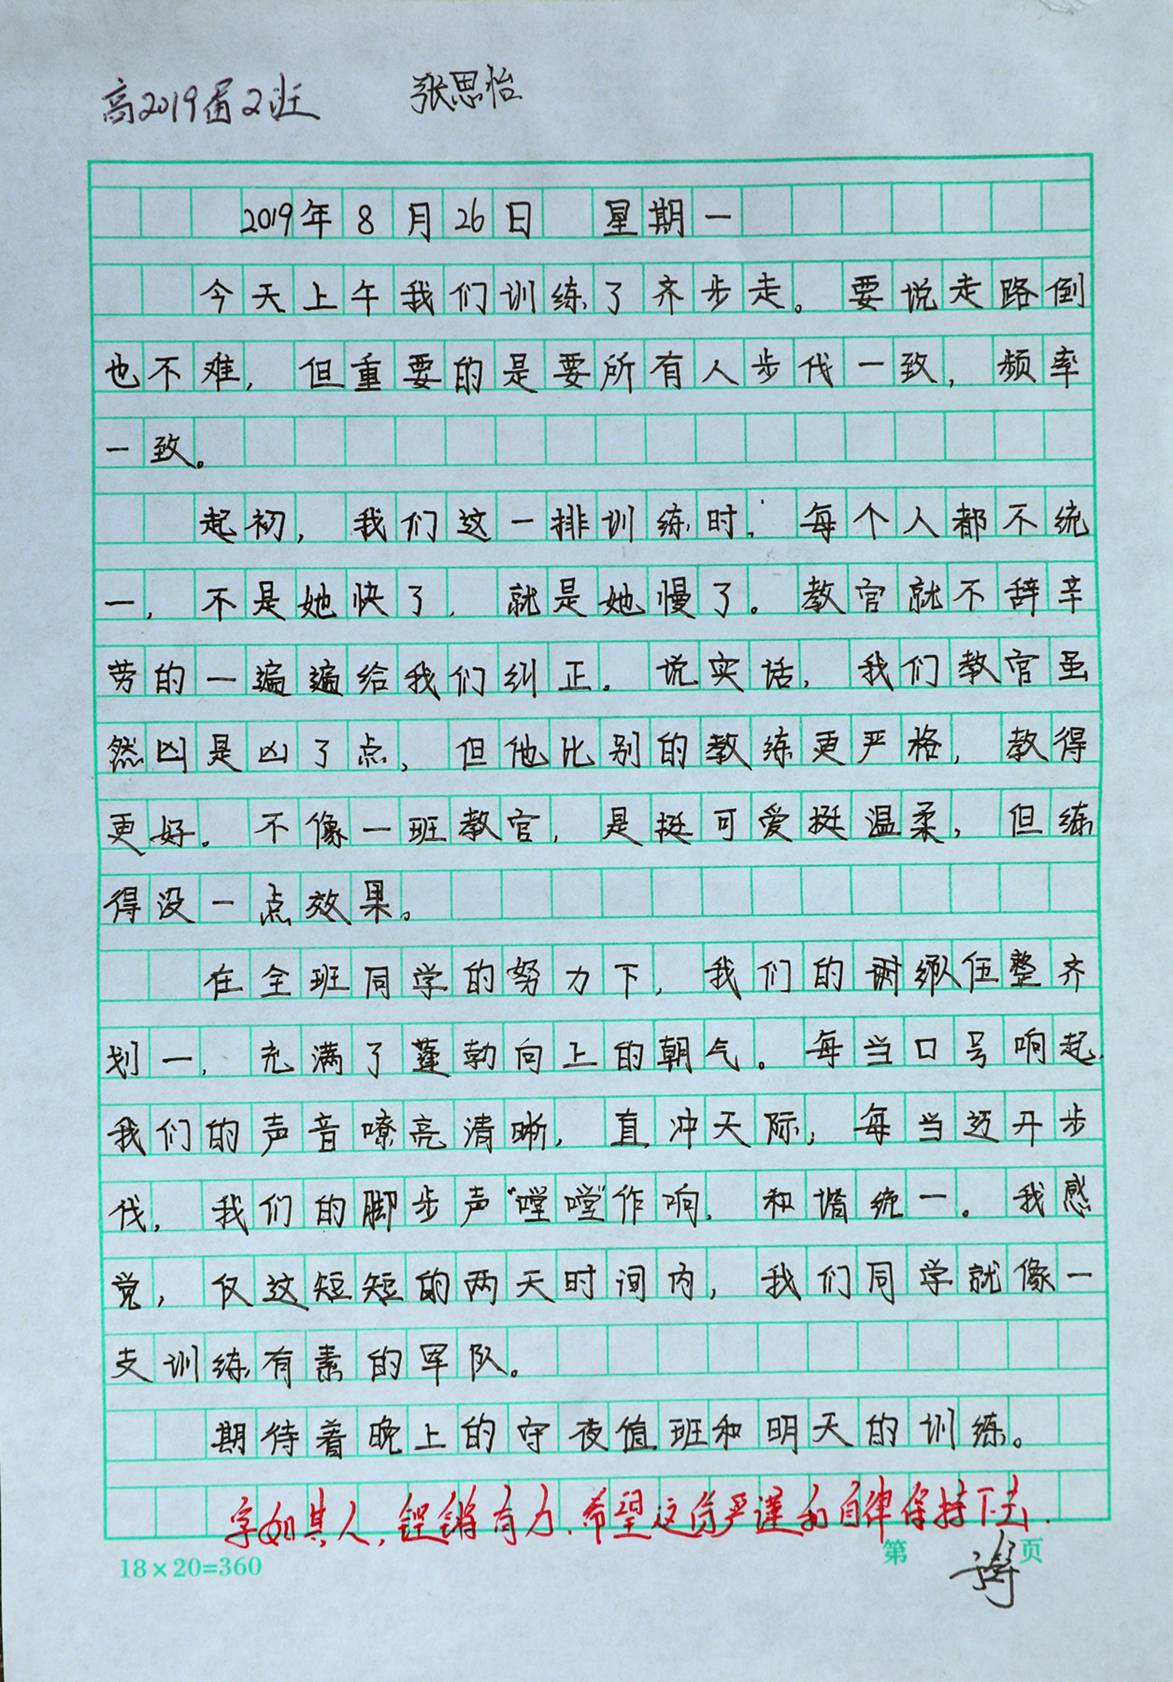 高2019届2班 张思怡
2019年8月26日 星期一
今天上午我们训练了齐步走。要说走路倒
也不难，但重要的是要所有人步伐一致，频率
一致。
起初，我们这一排训练时，每个人都不统
一，不是她快了，就是她慢了。教官就不辞辛
劳的一遍遍给我们纠正。说实话，我们教官虽
然凶是凶了点，但他比别的教练更严格，教得
更好。不像一班教官，是挺可爱挺温柔，但练
得没一点效果。
在全班同学的努力下，我们的队伍整齐
划一，充满了蓬勃向上的朝气。每当口号响起，
我们的声音嘹亮清晰，直冲天际，每当迈开步
伐，我们的脚步声“嘡嘡”作响，和谐统一。我感
觉，仅这短短的两天时间内，我们同学就像一
支训练有素的军队。
期待着晚上的守夜值班和明天的训练。
字如其人，铿锵有力，希望这份严谨和自律保持下去.
18×20=360 第 页